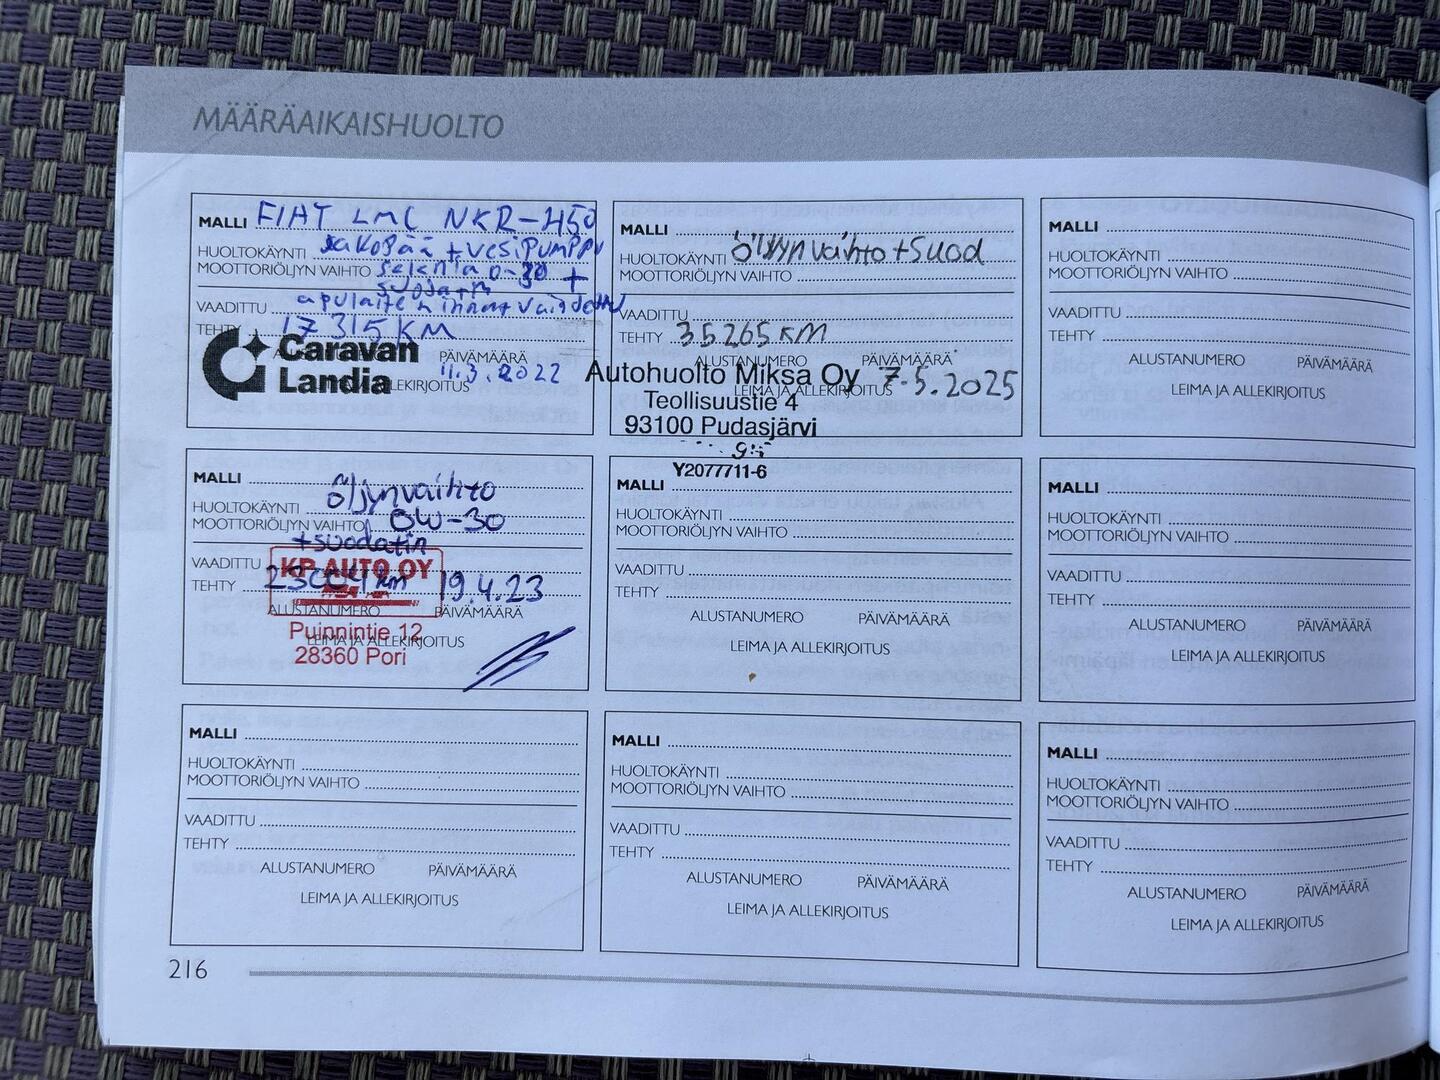 MÄÄRÄAIKAISHUOLTO
MALLI FIAT LMC NKR-450
HUOLTOKÄYNTI jakopää + vesipumppu
MOOTTORIÖLJYN VAIHTO 0-30 +
VAADITTU apulaite hihnat vaihdettu
TEHTY 17 315 KM
ALUSTANUMERO PÄIVÄMÄÄRÄ
11.3.2022
LEIMA JA ALLEKIRJOITUS
Caravan
Landia
MALLI
HUOLTOKÄYNTI öljyn vaihto + suod
MOOTTORIÖLJYN VAIHTO
VAADITTU
TEHTY 35265 KM
ALUSTANUMERO PÄIVÄMÄÄRÄ
Autohuolto Miksa Oy 7.5.2025
LEIMA JA ALLEKIRJOITUS
Teollisuustie 4
93100 Pudasjärvi
Y2077711-6
MALLI
HUOLTOKÄYNTI
MOOTTORIÖLJYN VAIHTO
VAADITTU
TEHTY
ALUSTANUMERO PÄIVÄMÄÄRÄ
LEIMA JA ALLEKIRJOITUS
MALLI
HUOLTOKÄYNTI öljynvaihto
MOOTTORIÖLJYN VAIHTO 0W-30
+suodatin
VAADITTU
KP AUTO OY
TEHTY km 19.4.23
ALUSTANUMERO PÄIVÄMÄÄRÄ
Puinnintie 12
LEIMA JA ALLEKIRJOITUS
28360 Pori
MALLI
HUOLTOKÄYNTI
MOOTTORIÖLJYN VAIHTO
VAADITTU
TEHTY
ALUSTANUMERO PÄIVÄMÄÄRÄ
LEIMA JA ALLEKIRJOITUS
MALLI
HUOLTOKÄYNTI
MOOTTORIÖLJYN VAIHTO
VAADITTU
TEHTY
ALUSTANUMERO PÄIVÄMÄÄRÄ
LEIMA JA ALLEKIRJOITUS
MALLI
HUOLTOKÄYNTI
MOOTTORIÖLJYN VAIHTO
VAADITTU
TEHTY
ALUSTANUMERO PÄIVÄMÄÄRÄ
LEIMA JA ALLEKIRJOITUS
MALLI
HUOLTOKÄYNTI
MOOTTORIÖLJYN VAIHTO
VAADITTU
TEHTY
ALUSTANUMERO PÄIVÄMÄÄRÄ
LEIMA JA ALLEKIRJOITUS
MALLI
HUOLTOKÄYNTI
MOOTTORIÖLJYN VAIHTO
VAADITTU
TEHTY
ALUSTANUMERO PÄIVÄMÄÄRÄ
LEIMA JA ALLEKIRJOITUS
216